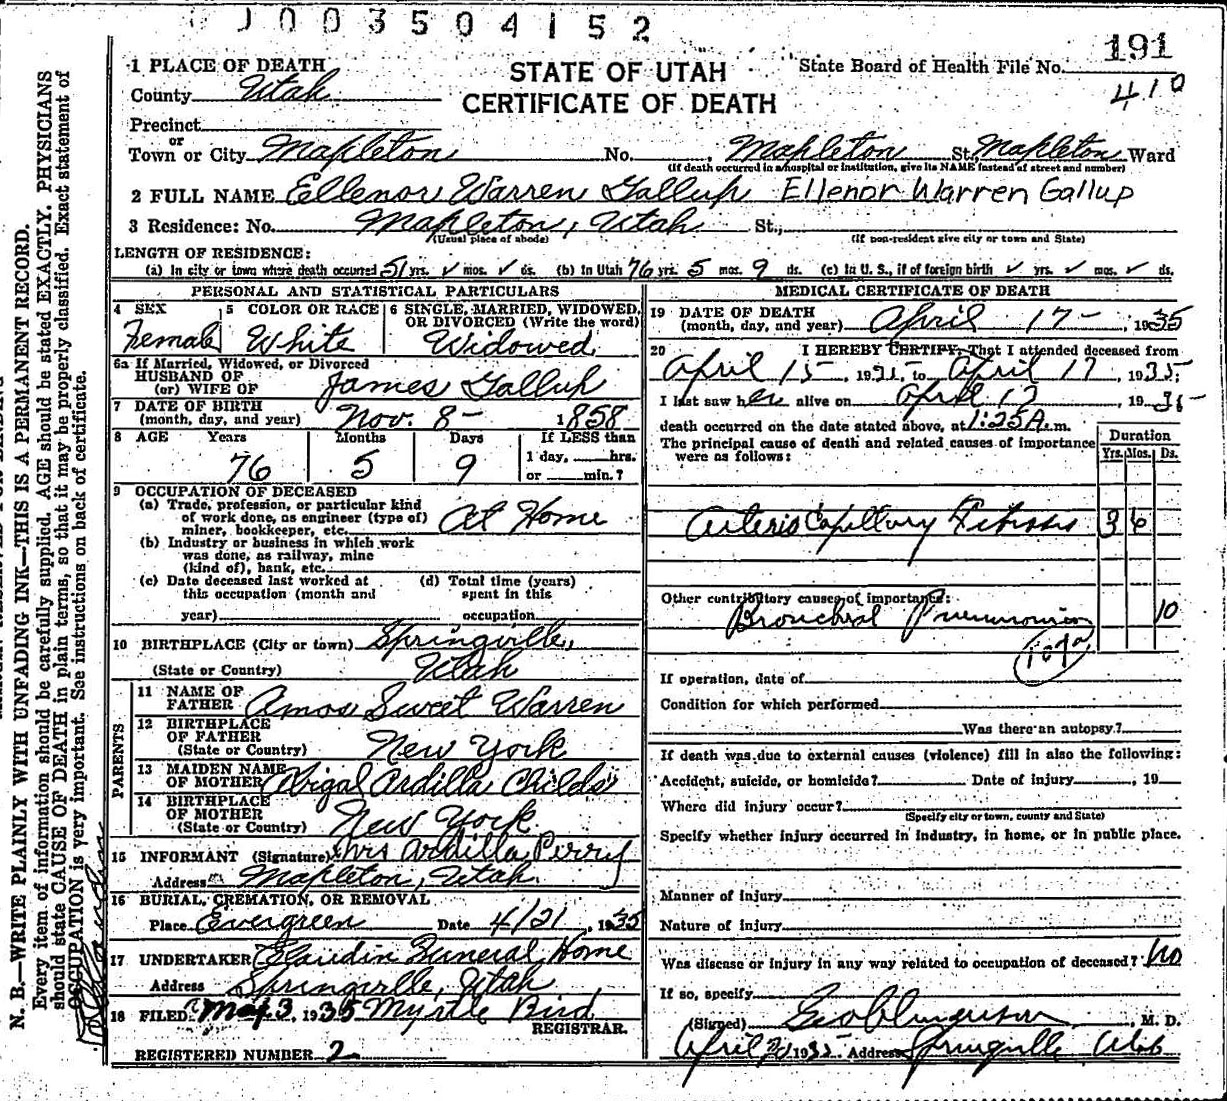 J 0 0 3 5 0 4 1 5 2
191
410
STATE OF UTAH
CERTIFICATE OF DEATH
State Board of Health File No.
1 PLACE OF DEATH
County Utah
Precinct
or
Town or City Mapleton No. , Mapleton St., Mapleton Ward
(If death occurred in a hospital or institution, give its NAME instead of street and number)
2 FULL NAME Ellenor Warren Gallup Ellenor Warren Gallup
3 Residence: No. Mapleton, Utah St.,
(Usual place of abode) (If non-resident give city or town and State)
LENGTH OF RESIDENCE:
(a) In city or town where death occurred 51 yrs. ✓ mos. ✓ ds. (b) In Utah 76 yrs. 5 mos. 9 ds. (c) In U. S., if of foreign birth ✓ yrs. ✓ mos. ✓ ds.
PERSONAL AND STATISTICAL PARTICULARS
4 SEX
Female
5 COLOR OR RACE
White
6 SINGLE, MARRIED, WIDOWED, OR DIVORCED (Write the word)
Widowed
6a If Married, Widowed, or Divorced
HUSBAND OF
(or) WIFE OF James Gallup
7 DATE OF BIRTH
(month, day, and year) Nov. 8- 1858
8 AGE Years Months Days If LESS than
76 5 9 1 day, hrs.
or min.?
9 OCCUPATION OF DECEASED
(a) Trade, profession, or particular kind
of work done, as engineer (type of)
miner, bookkeeper, etc. At Home
(b) Industry or business in which work
was done, as railway, mine
(kind of), bank, etc.
(c) Date deceased last worked at
this occupation (month and
year)
(d) Total time (years)
spent in this
occupation
10 BIRTHPLACE (City or town) Springville,
(State or Country) Utah
PARENTS
11 NAME OF
FATHER Amos Sweet Warren
12 BIRTHPLACE
OF FATHER
(State or Country) New York
13 MAIDEN NAME
OF MOTHER Abigal Ardilla Childs
14 BIRTHPLACE
OF MOTHER
(State or Country) New York
15 INFORMANT (Signature) Mrs Ardilla Perry
Address Mapleton, Utah
16 BURIAL, CREMATION, OR REMOVAL
Place Evergreen Date 4/21, 1935
17 UNDERTAKER Claudin Funeral Home
Address Springville, Utah
18 FILED May 3, 1935 Myrtle Bird
REGISTRAR.
REGISTERED NUMBER 2
MEDICAL CERTIFICATE OF DEATH
19 DATE OF DEATH
(month, day, and year) April 17- 1935
20 I HEREBY CERTIFY, That I attended deceased from
April 15, 1935, to April 17, 1935;
I last saw her alive on April 17, 1935
death occurred on the date stated above, at 1:25 A. m.
The principal cause of death and related causes of importance
were as follows:
Duration
Yrs. Mos. Ds.
Arterio Capillary Fibrosis 3 6
Other contributory causes of importance:
Bronchial Pneumonia 10
107a
If operation, date of
Condition for which performed
Was there an autopsy?
If death was due to external causes (violence) fill in also the following:
Accident, suicide, or homicide? Date of injury , 19
Where did injury occur?
(Specify city or town, county and State)
Specify whether injury occurred in industry, in home, or in public place.
Manner of injury
Nature of injury
Was disease or injury in any way related to occupation of deceased? No
If so, specify
(Signed) , M. D.
April 1935 Address Springville Utah
N. B.—WRITE PLAINLY WITH UNFADING INK—THIS IS A PERMANENT RECORD.
Every item of information should be carefully supplied. AGE should be stated EXACTLY. PHYSICIANS
should state CAUSE OF DEATH in plain terms, so that it may be properly classified. Exact statement of
OCCUPATION is very important. See instructions on back of certificate.